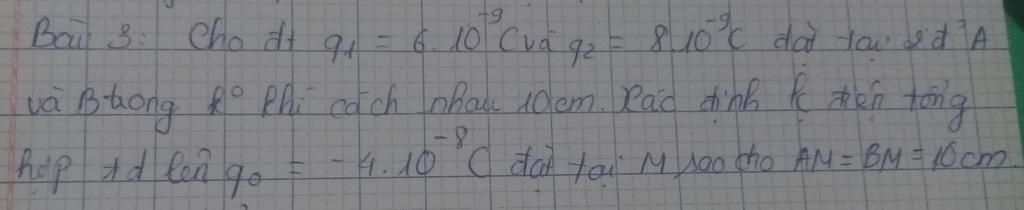 Bài 3: Cho đt q₁ = 6.10⁻⁹C và q₂ = 8.10⁻⁹C đặt tại 2 đ' A
và B trong k° khí cách nhau 10cm. Xác định lực điện tổng
hợp td lên q₀ = -4.10⁻⁸C đặt tại M sao cho AM = BM = 10cm